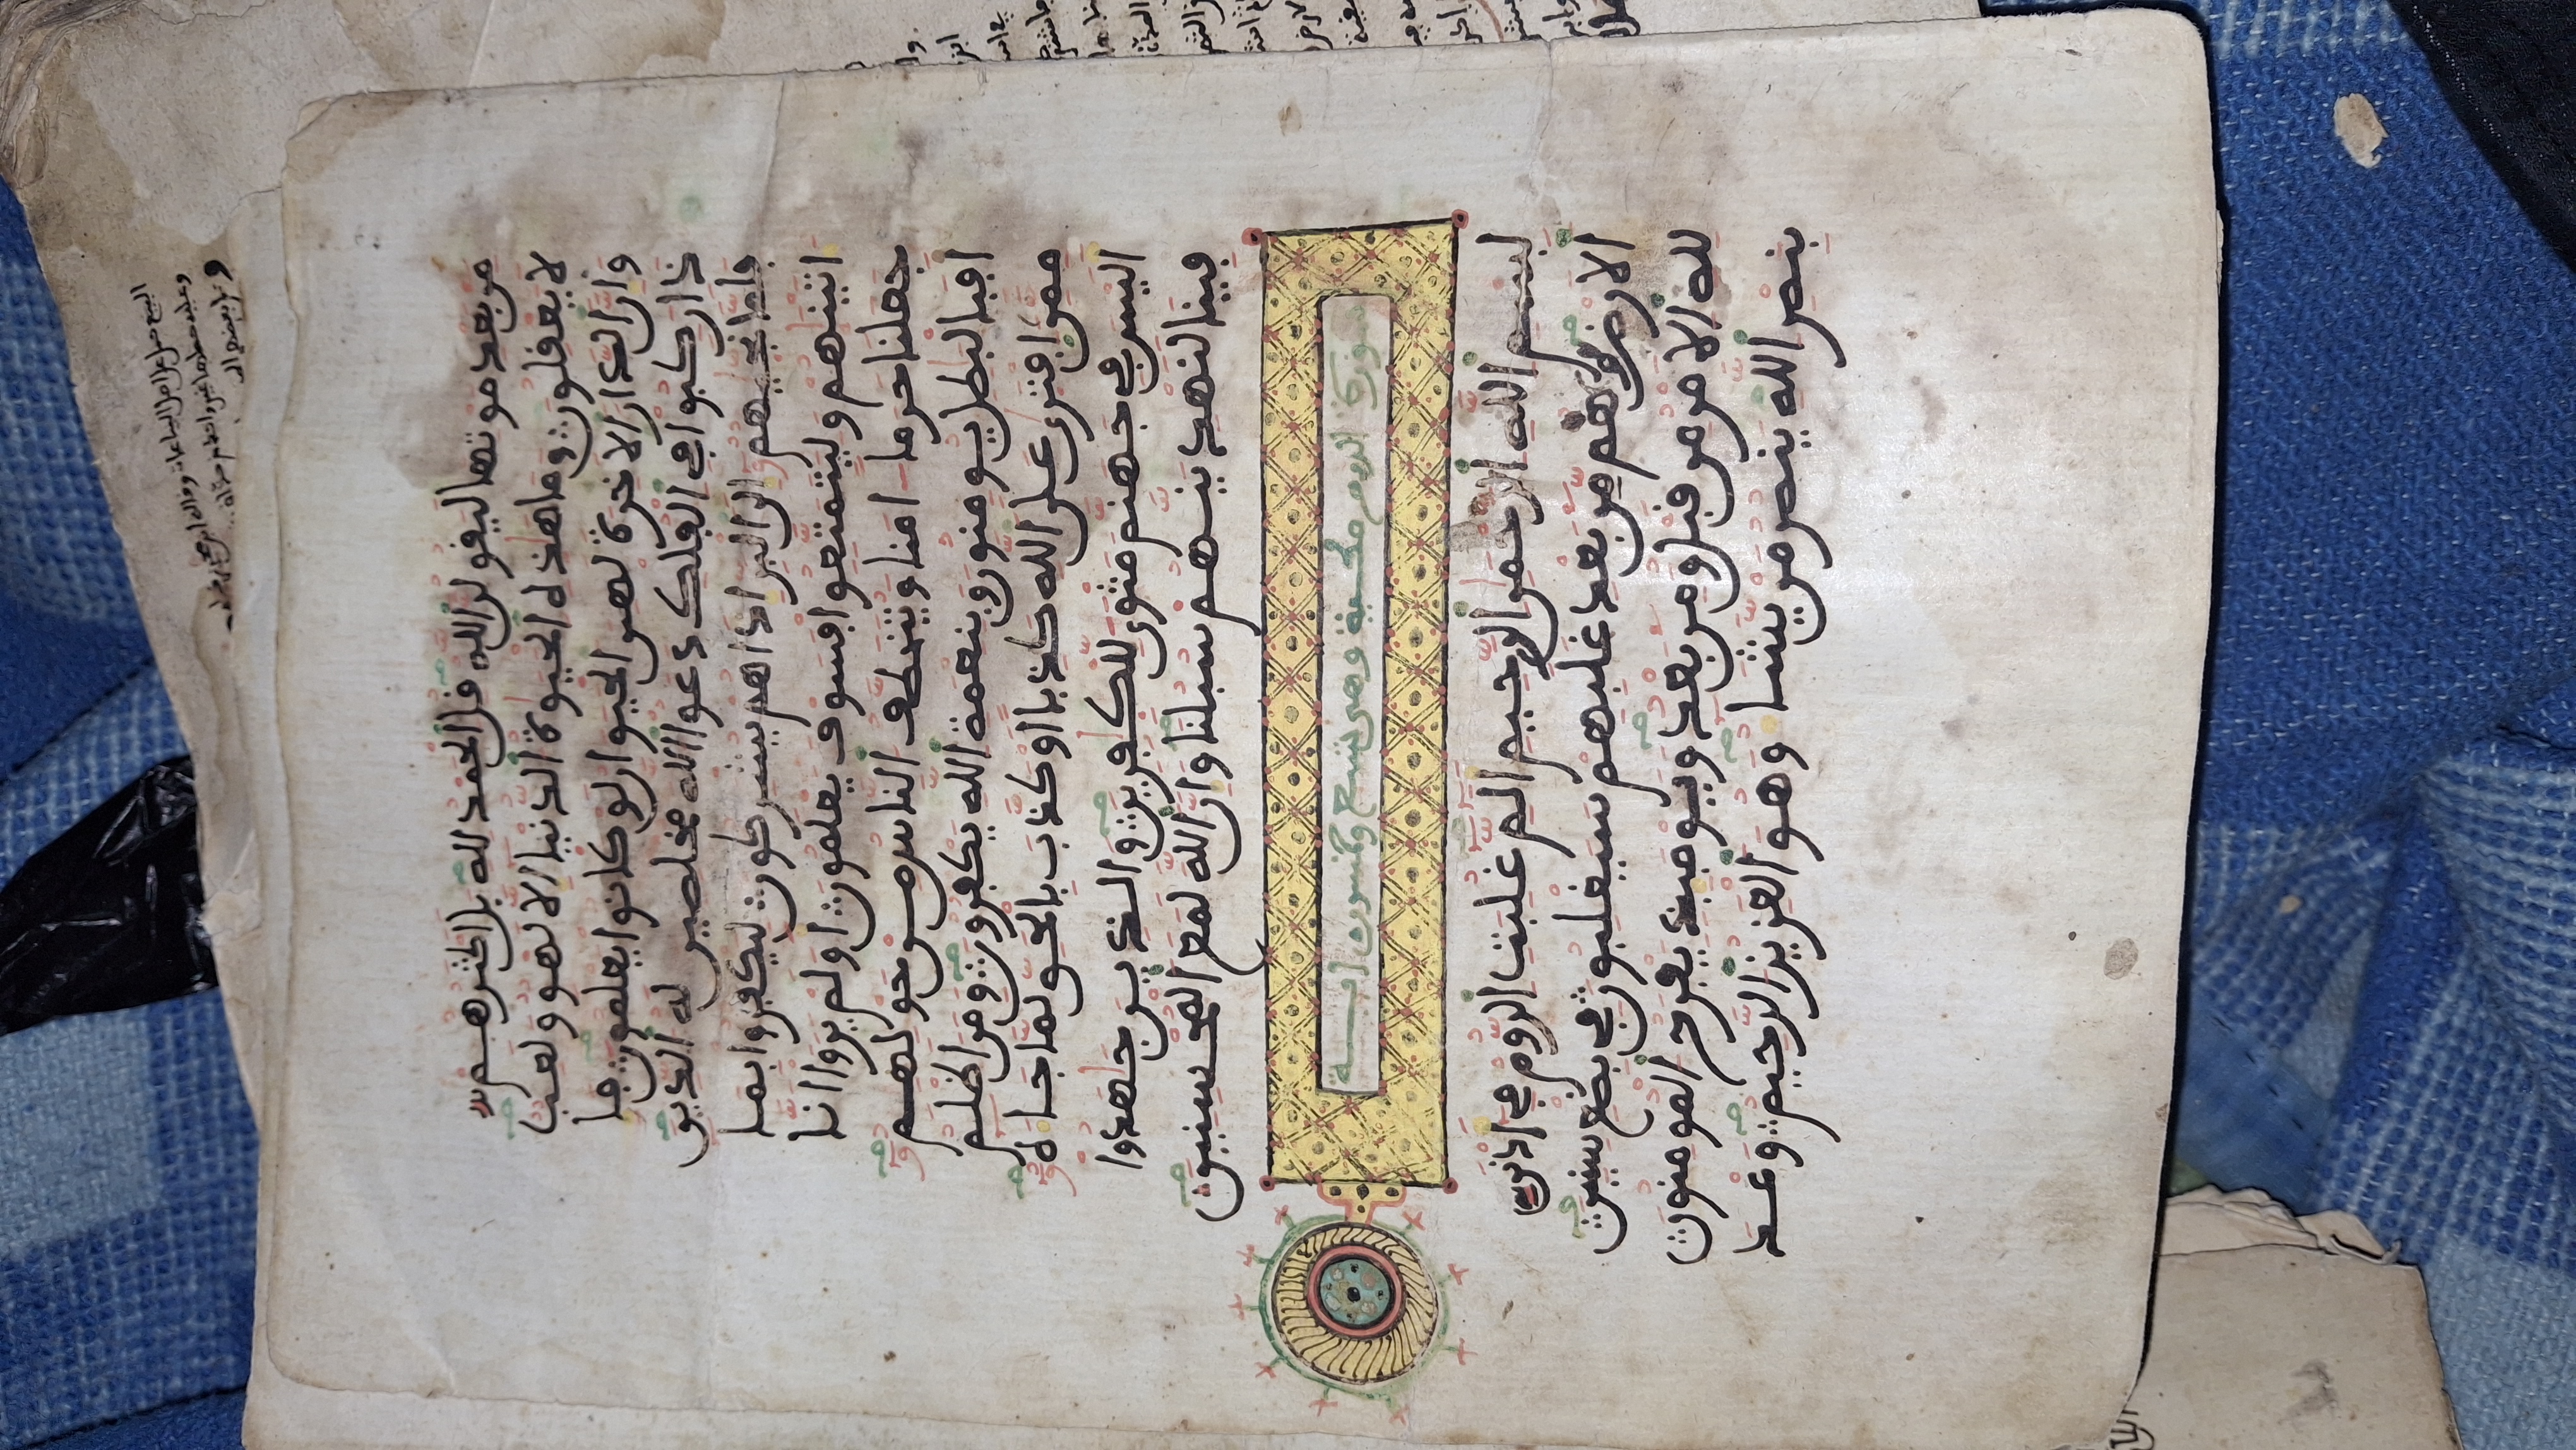 من بعد موتها ليقولن الله قل الحمد لله بل اكثرهم
لا يعقلون وما هذه الحيوة الدنيا الا لهو ولعب
وان الدار الاخرة لهى الحيوان لو كانوا يعلمون فا
ذا ركبوا في الفلك دعوا الله مخلصين له الدين
فلما نجيهم الى البر اذا هم يشركون ليكفروا بما
اتينهم وليتمتعوا فسوف يعلمون اولم يروا انا
جعلنا حرما امنا ويتخطف الناس من حولهم
افبالبطل يومنون وبنعمة الله يكفرون ومن اظلم
ممن افترى على الله كذبا او كذب بالحق لما جاه
اليس في جهنم مثوى للكفرين والذين جهدوا
فينا لنهدينهم سبلنا وان الله لمع المحسنين
سورة الروم مكية وهي تسع وخمسون اية
بسم الله الرحمن الرحيم الم غلبت الروم في ادنى
الارض وهم من بعد غلبهم سيغلبون في بضع سنين
لله الامر من قبل ومن بعد ويومئذ يفرح المومنون
بنصر الله ينصر من يشا وهو العزيز الرحيم وعد